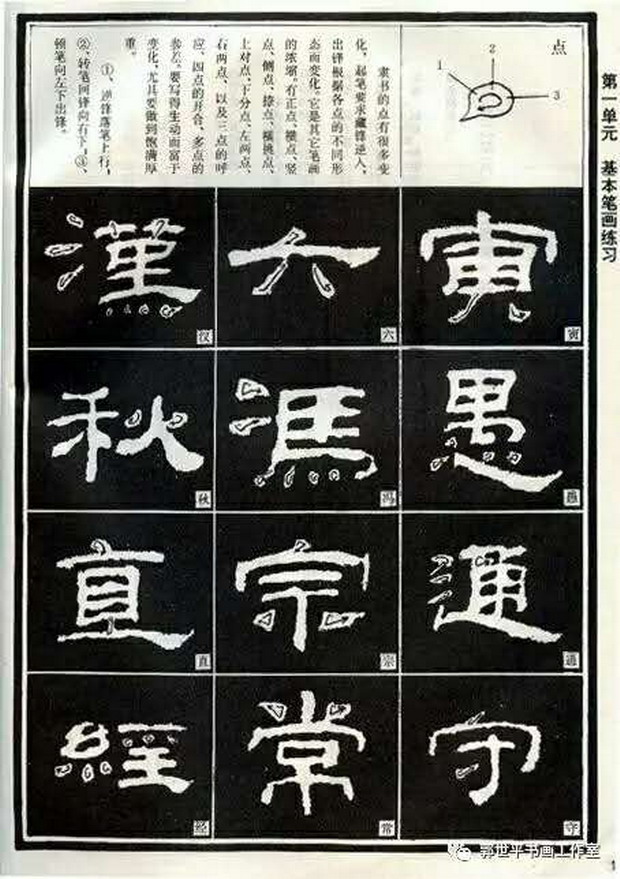 第一单元 基本笔画练习
点
1
2
3
隶书的点有很多变
化，起笔要求藏锋逆入，
出锋根据各点的不同形
态而变化。它是其它笔画
的浓缩。有正点、横点、竖
点、侧点、捺点、横挑点、
上对点、下分点、左两点、
右两点、以及三点的呼
应、四点的开合、多点的
参差。要写得生动而富于
变化，尤其要做到饱满厚
重。
①、逆锋落笔上行，
②、转笔回锋向右下，③、
顿笔向左下出锋。
寅
寅
六
六
漢
汉
愚
愚
馮
冯
秋
秋
通
通
宗
宗
直
直
守
守
常
常
經
经
鄂世平书画工作室